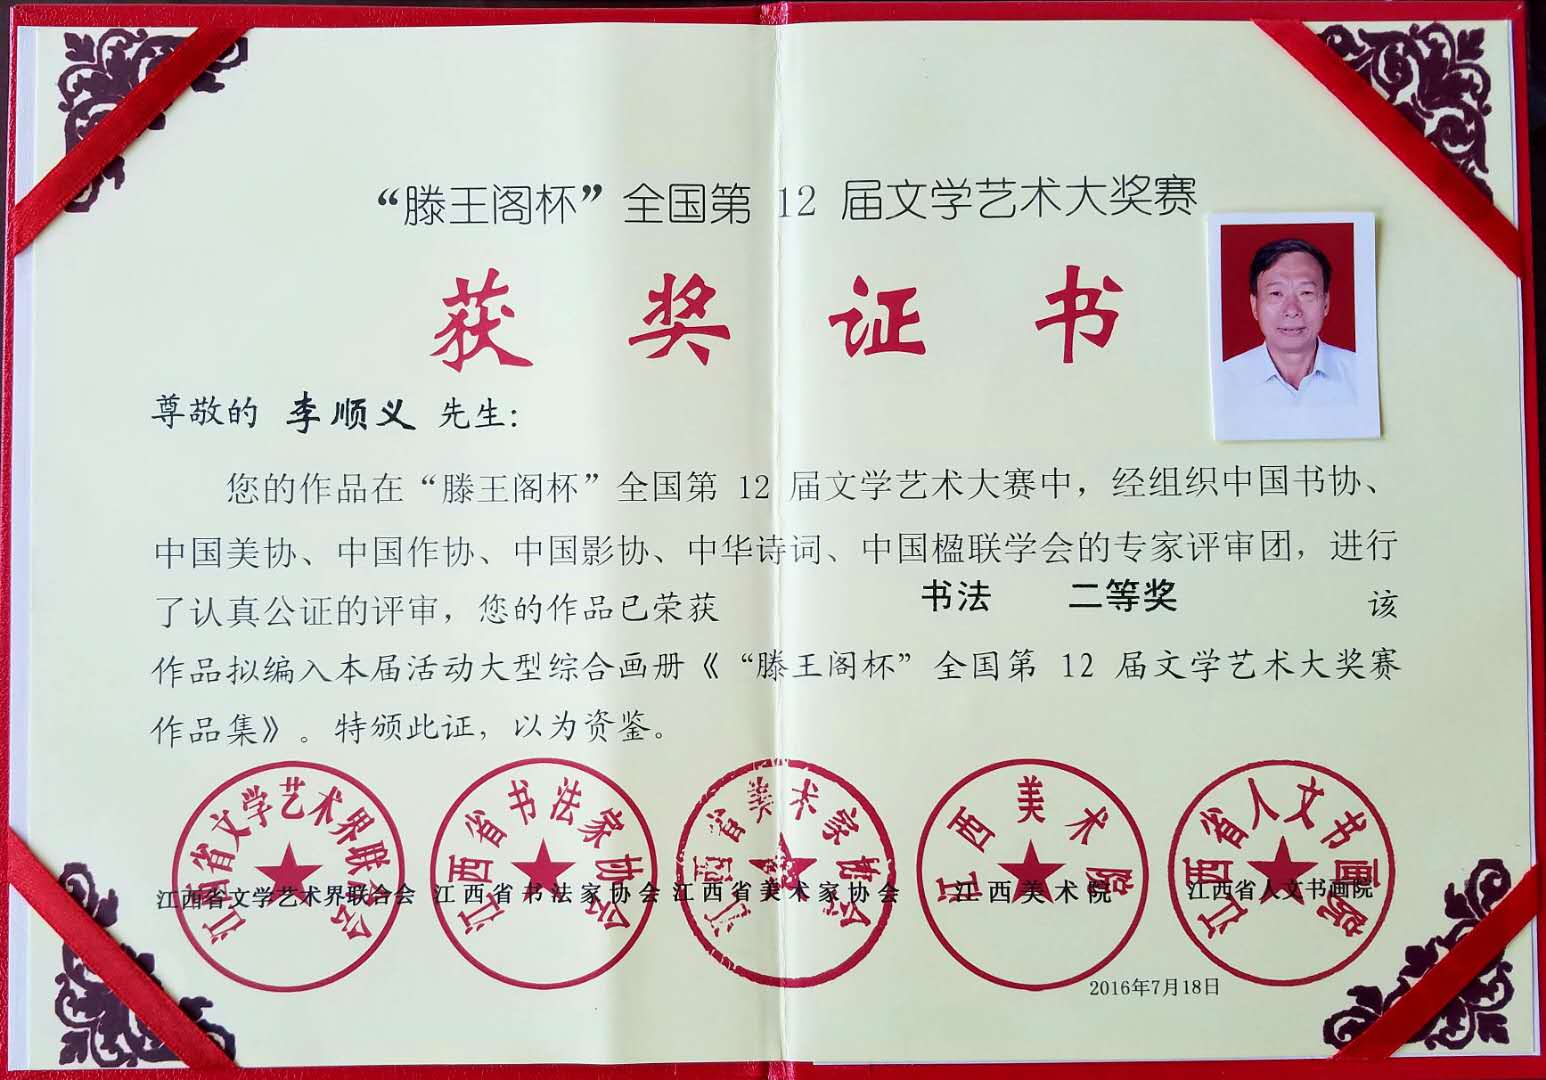 “滕王阁杯”全国第 12 届文学艺术大奖赛
获奖证书
尊敬的 李顺义 先生：
您的作品在“滕王阁杯”全国第 12 届文学艺术大赛中，经组织中国书协、
中国美协、中国作协、中国影协、中华诗词、中国楹联学会的专家评审团，进行
了认真公证的评审，您的作品已荣获 书法 二等奖 该
作品拟编入本届活动大型综合画册《“滕王阁杯”全国第 12 届文学艺术大奖赛
作品集》。特颁此证，以为资鉴。
江西省文学艺术界联合会
江西省书法家协会
江西省美术家协会
江西美术院
江西省人文书画院
江西省文学艺术界联合会 江西省书法家协会 江西省美术家协会 江西美术院 江西省人文书画院
2016年7月18日